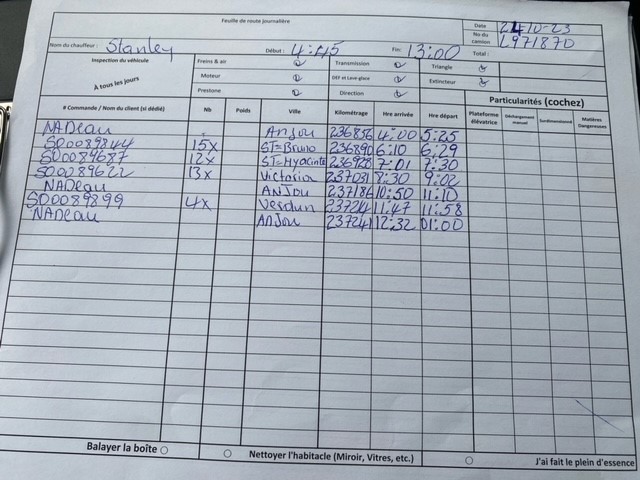 Feuille de route journalière
Date 24-10-23
No du camion L971870
Nom du chauffeur : Stanley Début : 4:45 Fin: 13:00 Total :
Inspection du véhicule Freins & air Transmission Triangle
À tous les jours Moteur DEF et Lave-glace Extincteur
Prestone Direction
Particularités (cochez)
# Commande / Nom du client (si dédié) Nb Poids Ville Kilométrage Hre arrivée Hre départ Plateforme élévatrice Déchargement manuel Surdimensionné Matières Dangereuses
NADeau Anjou 236856 4:00 5:25
SD0089844 15x ST-Bruno 236890 6:10 6:29
SD0089687 12x ST-Hyacinte 236928 7:01 7:30
SD0089622 13x Victoria 237031 8:30 9:02
NADeau ANJou 237186 10:50 11:10
SD0089899 4x Verdun 237214 11:47 11:58
NADeau ANJou 237241 12:32 01:00
Balayer la boîte Nettoyer l'habitacle (Miroir, Vitres, etc.) J'ai fait le plein d'essence